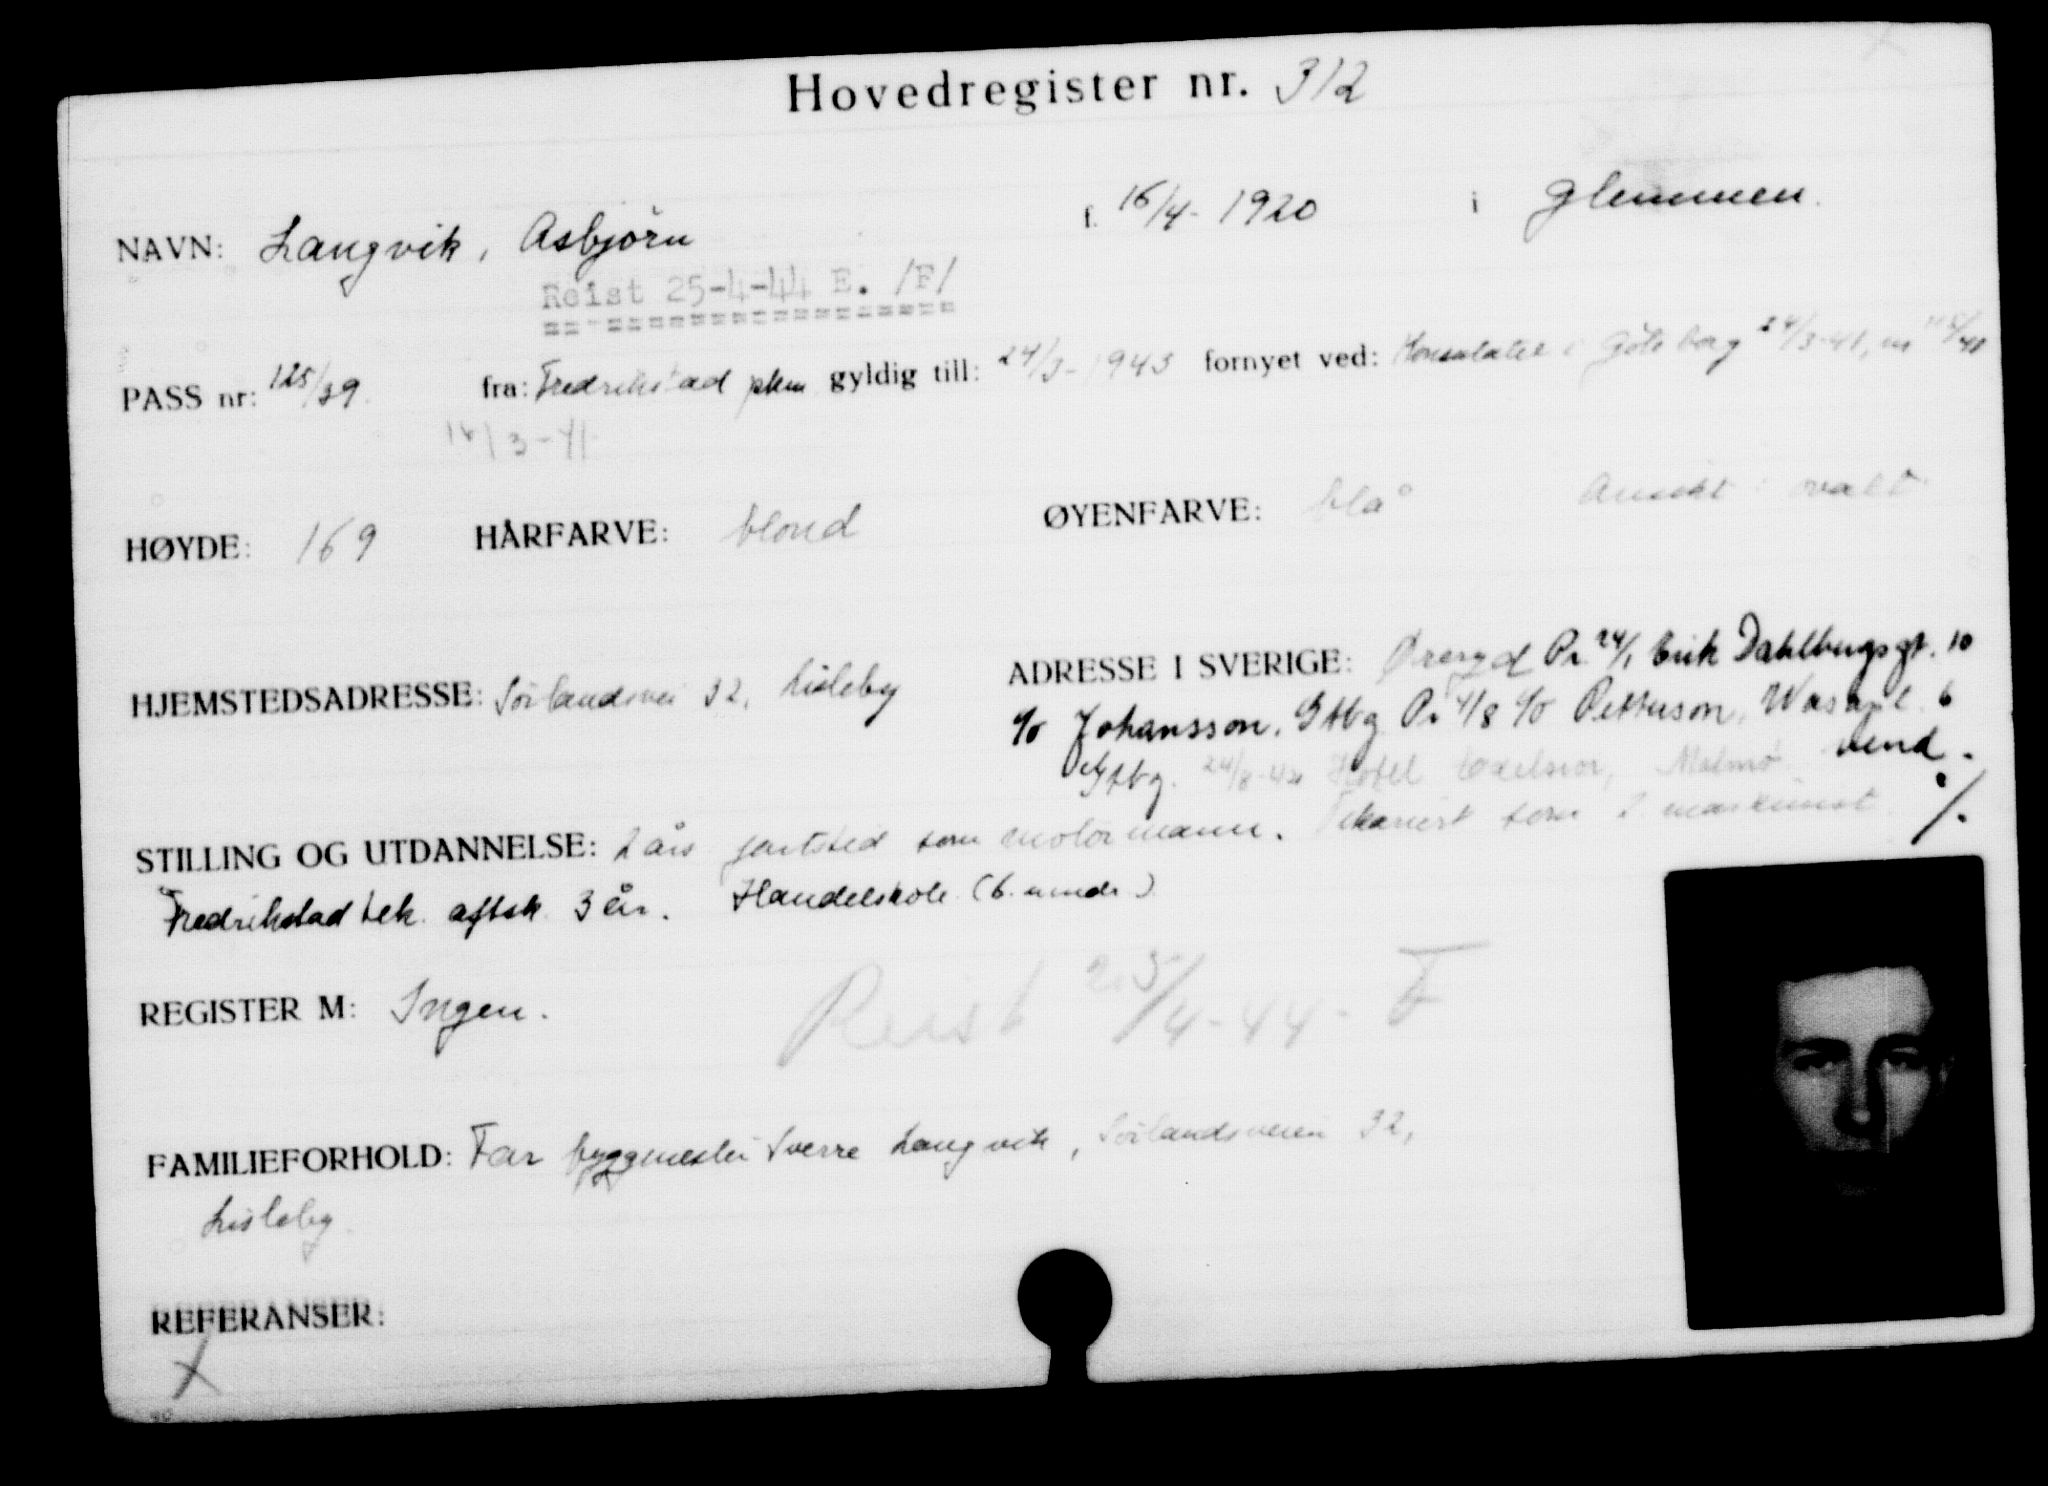 Hovedregister nr. 312
NAVN: Langvik, Asbjörn f. 16/4-1920 i Glemmen.
Reist 25-4-44 E. /F/
PASS nr: 125/39. fra: Fredrikstad pkm gyldig till: 24/3-1943 fornyet ved: Konsulatet i Göteborg 24/3-41,
/3-41
HØYDE: 169 HÅRFARVE: blond ØYENFARVE: blå Ansikt: ovalt
HJEMSTEDSADRESSE: Sörlandsvei 32, Lisleby ADRESSE I SVERIGE: Öreryd Pr. 24/1 Erik Dahlbergsgt. 10
c/o Johansson, Gtbg Pr 4/8 c/o Petterson, Wasapl. 6
Gtbg. 24/8-42 Hotel Excelsior, Malmö vend.
STILLING OG UTDANNELSE: 2 års fartstid som motormann. som 2. maskinist ./.
Fredrikstad tek. aftsk. 3 år. Handelskole (6. mndr.)
REGISTER M: Ingen. Reist 25/4-44 - F
FAMILIEFORHOLD: Far byggmester Sverre Langvik, Sörlandsveien 32,
Lisleby.
REFERANSER:
X